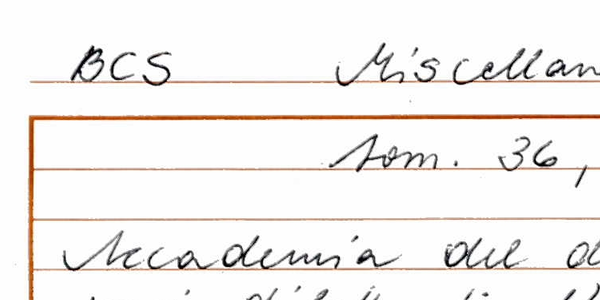 BCS Miscellan
tom. 36,
Accademia del